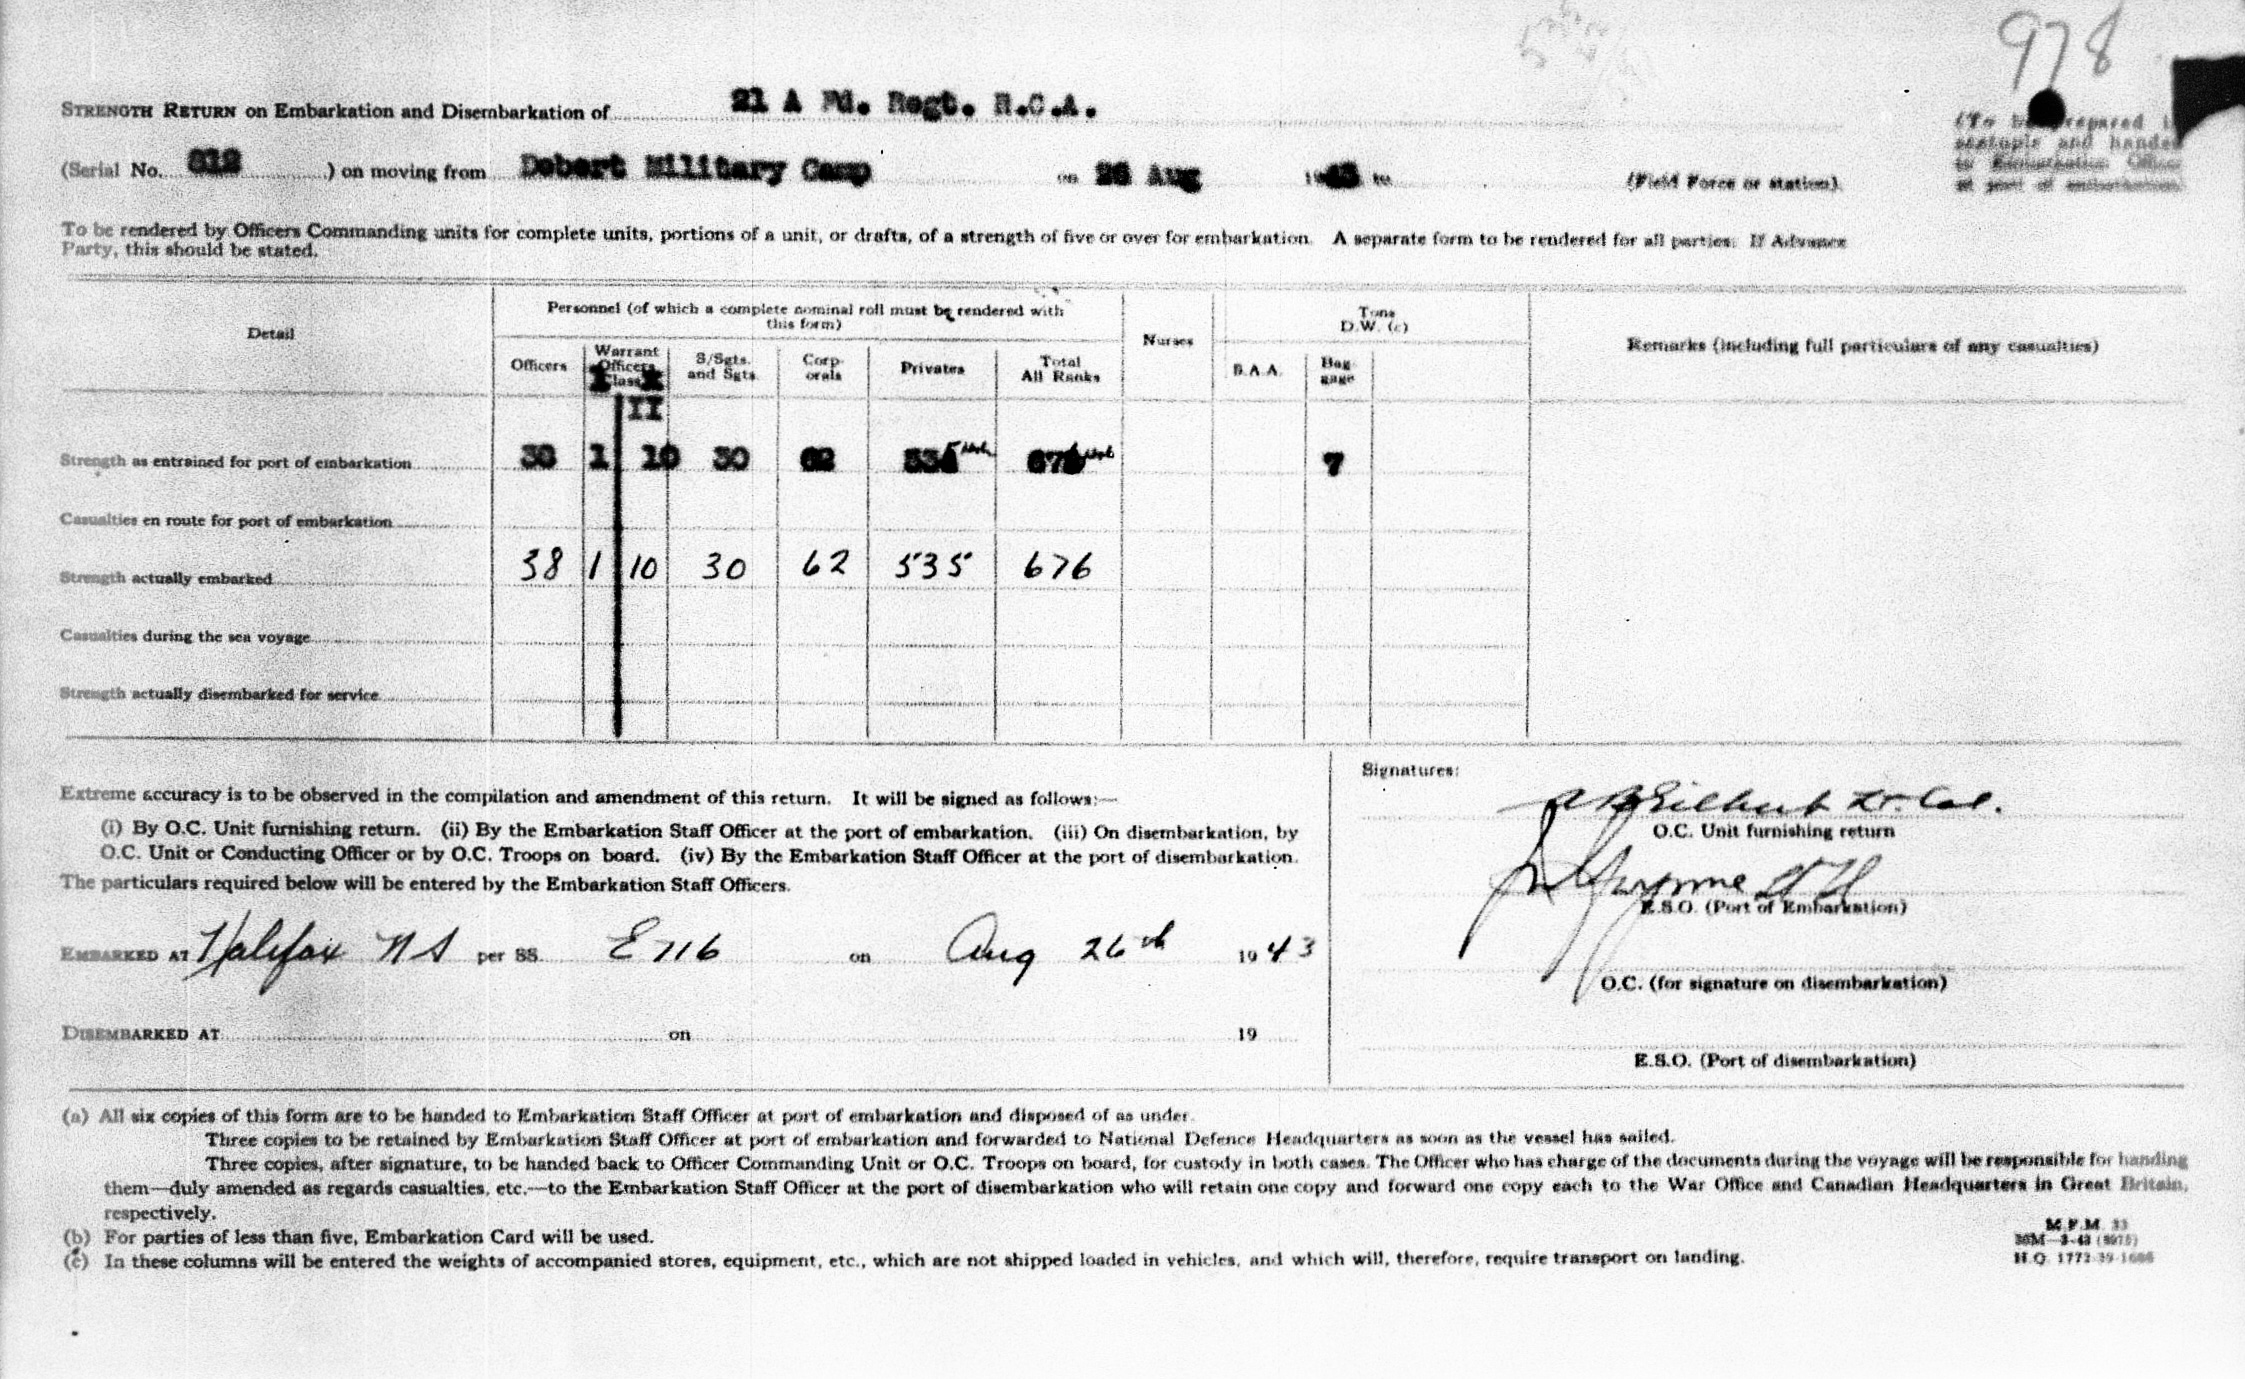 978
STRENGTH RETURN on Embarkation and Disembarkation of 21 A Fd. Regt. R.C.A.
(To be prepared
and handed
to Embarkation Officer
at port of embarkation)
(Serial No. 812 ) on moving from Debert Military Camp on 26 Aug 1943 to (Field Force or station).
To be rendered by Officers Commanding units for complete units, portions of a unit, or drafts, of a strength of five or over for embarkation. A separate form to be rendered for all parties. If Advance
Party, this should be stated.
Detail
Personnel (of which a complete nominal roll must be rendered with
this form)
Nurses
Tons
D.W. (c)
Remarks (including full particulars of any casualties)
Officers
Warrant
Officers
Class
I
II
S/Sgts.
and Sgts.
Corp-
orals
Privates
Total
All Ranks
S.A.A.
Bag-
gage
Strength as entrained for port of embarkation 38 1 10 30 62 535 676 7
Casualties en route for port of embarkation
Strength actually embarked 38 1 10 30 62 535 676
Casualties during the sea voyage
Strength actually disembarked for service
Extreme accuracy is to be observed in the compilation and amendment of this return. It will be signed as follows:—
(i) By O.C. Unit furnishing return. (ii) By the Embarkation Staff Officer at the port of embarkation. (iii) On disembarkation, by
O.C. Unit or Conducting Officer or by O.C. Troops on board. (iv) By the Embarkation Staff Officer at the port of disembarkation.
The particulars required below will be entered by the Embarkation Staff Officers.
EMBARKED AT Halifax NS per SS E716 on Aug 26th 1943
DISEMBARKED AT on 19
Signatures:
Gilbert Lt. Col.
O.C. Unit furnishing return
Gwynne
E.S.O. (Port of Embarkation)
O.C. (for signature on disembarkation)
E.S.O. (Port of disembarkation)
(a) All six copies of this form are to be handed to Embarkation Staff Officer at port of embarkation and disposed of as under.
Three copies to be retained by Embarkation Staff Officer at port of embarkation and forwarded to National Defence Headquarters as soon as the vessel has sailed.
Three copies, after signature, to be handed back to Officer Commanding Unit or O.C. Troops on board, for custody in both cases. The Officer who has charge of the documents during the voyage will be responsible for handing
them—duly amended as regards casualties, etc.—to the Embarkation Staff Officer at the port of disembarkation who will retain one copy and forward one copy each to the War Office and Canadian Headquarters in Great Britain,
respectively.
(b) For parties of less than five, Embarkation Card will be used.
(c) In these columns will be entered the weights of accompanied stores, equipment, etc., which are not shipped loaded in vehicles, and which will, therefore, require transport on landing.
M.F.M. 33
H.Q. 1772-39-1686